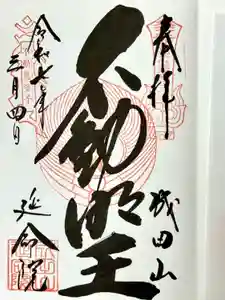 奉拝
成田山
不動明王
令和七年
三月四日
延命院